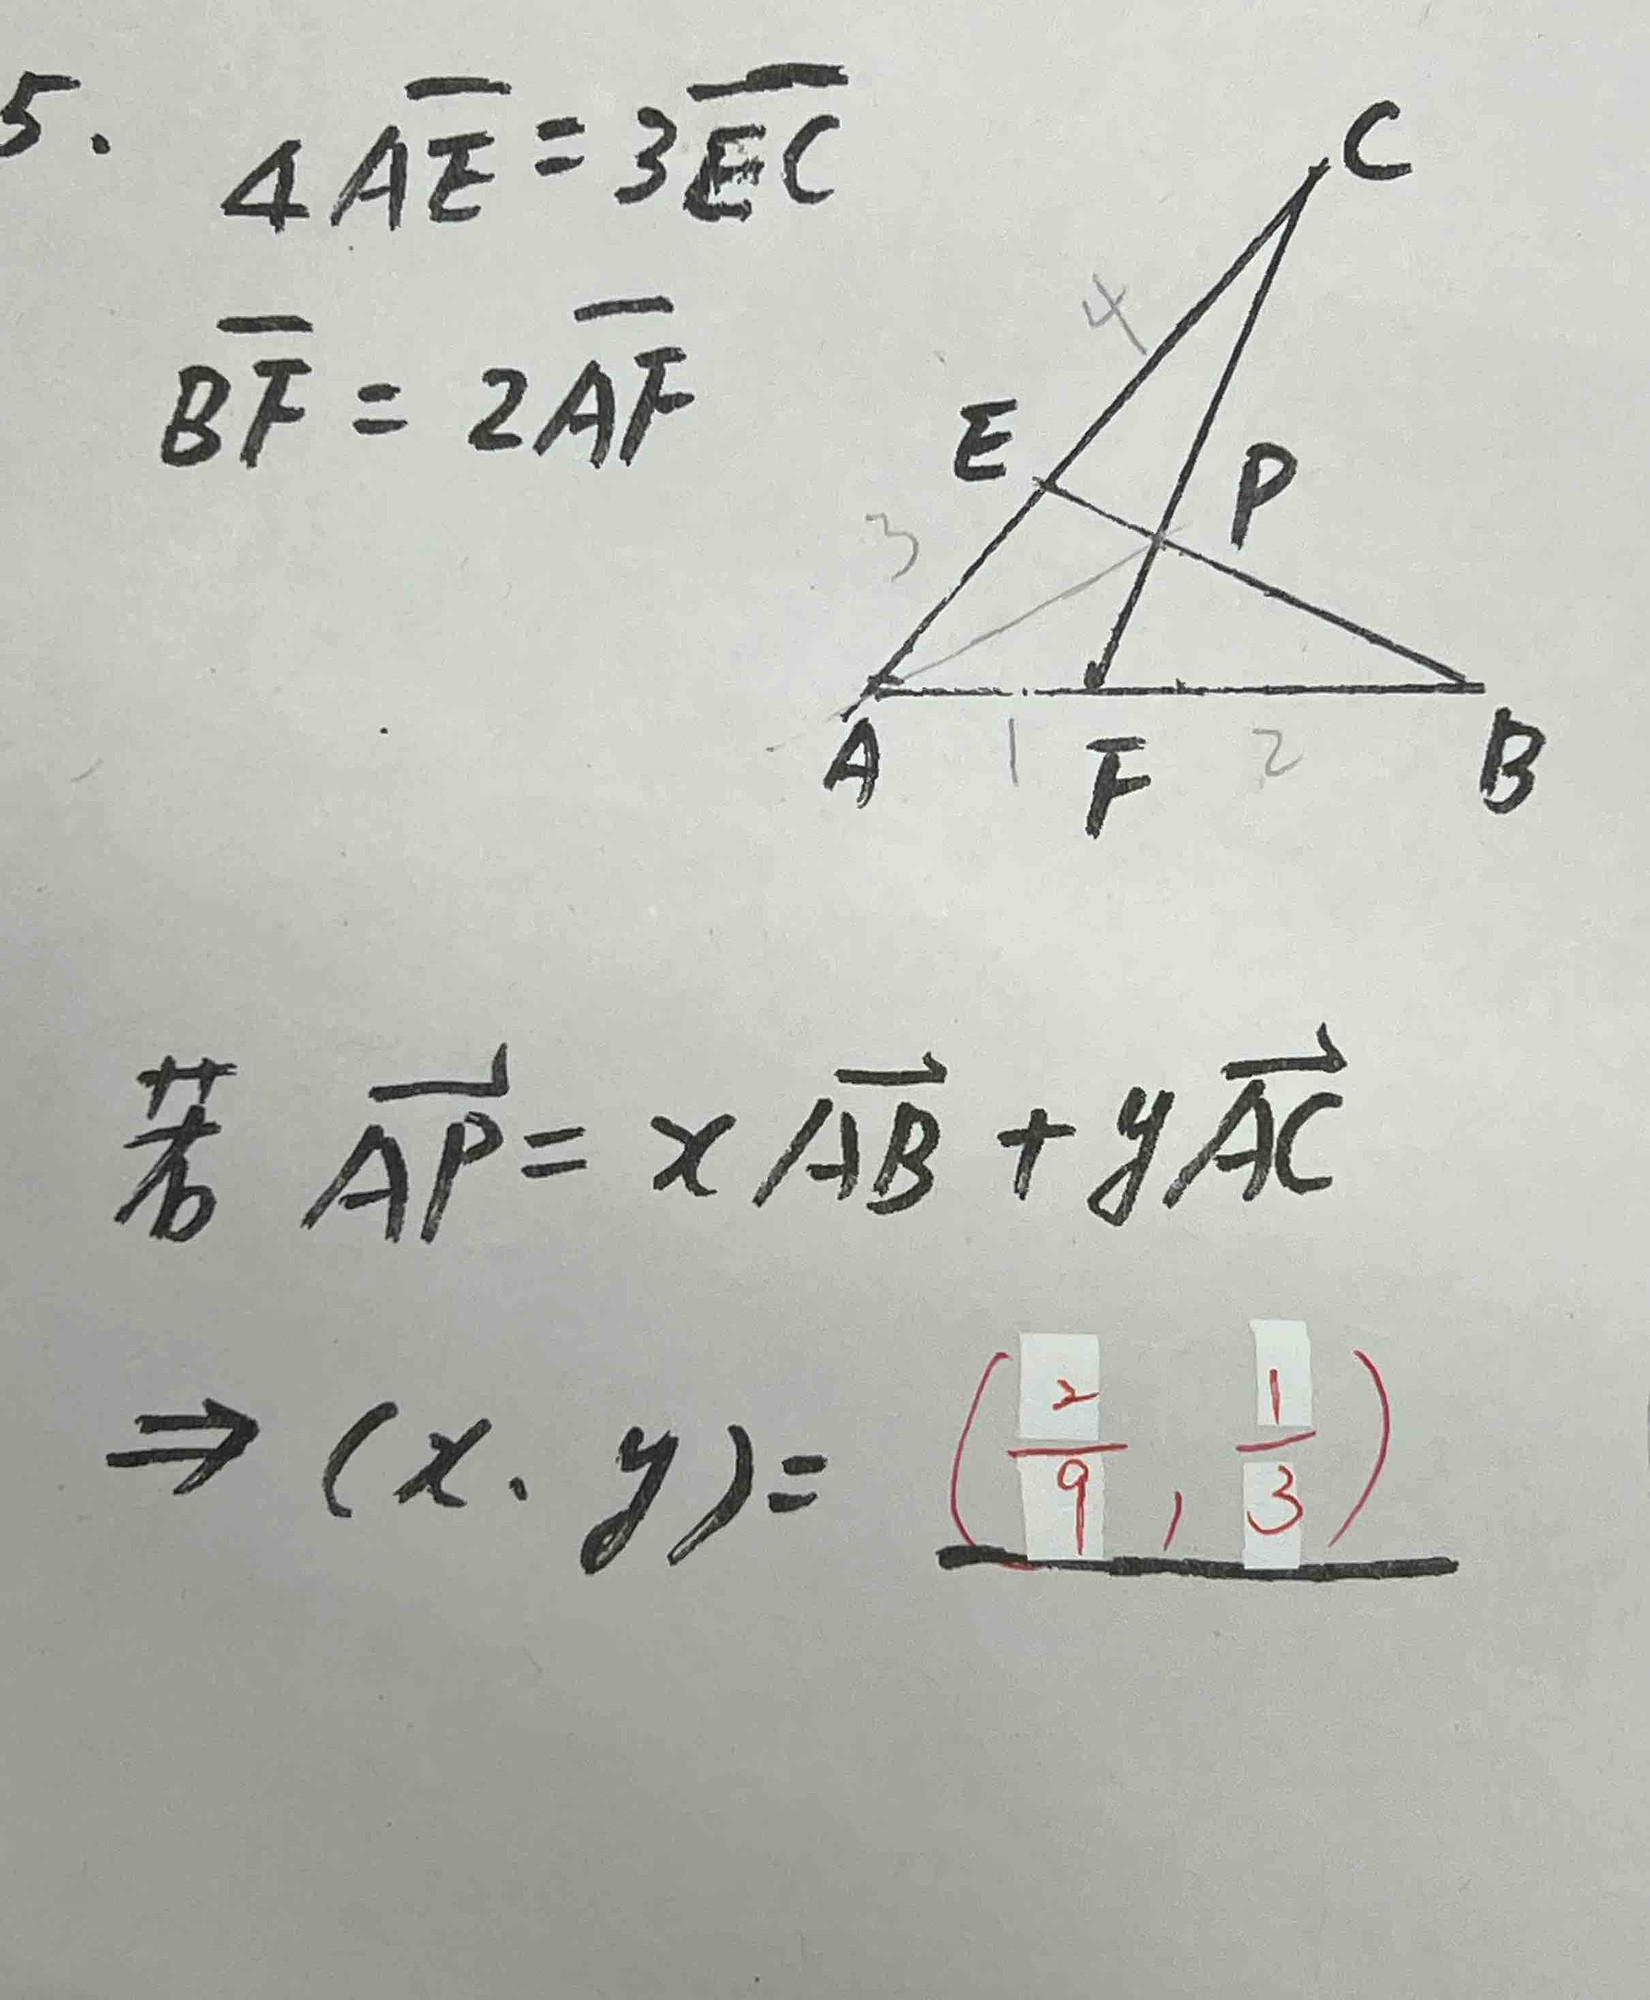 5. 4A̅E̅ = 3E̅C̅
B̅F̅ = 2A̅F̅
C
4
E
P
3
A 1 F 2 B
若 AP⃗ = xAB⃗ + yAC⃗
⇒ (x. y) = (2/9, 1/3)